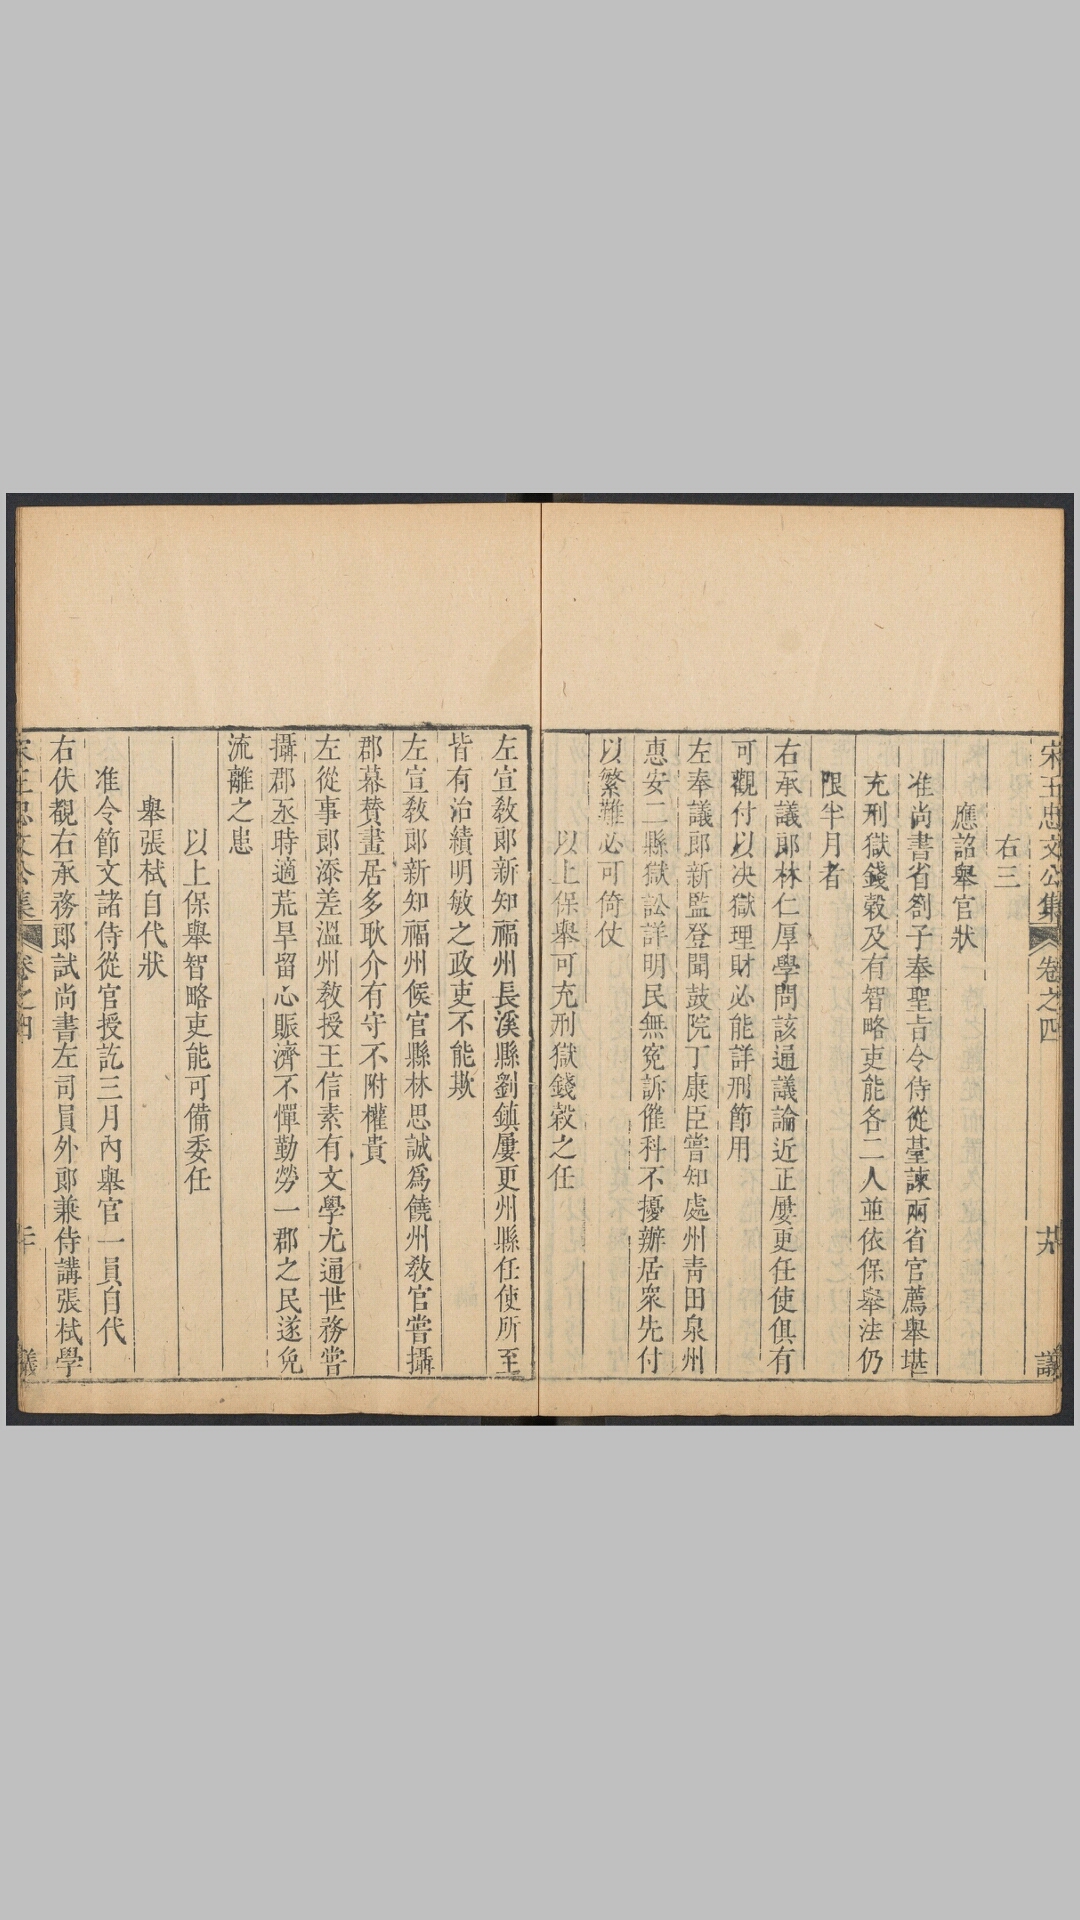 宋王忠文公集 卷之四 十九 議
右三
應詔舉官狀
准尚書省劄子奉聖旨令侍從臺諫兩省官薦舉堪
充刑獄錢穀及有智略吏能各二人並依保舉法仍
限半月者
右承議郎林仁厚學問該通議論近正屢更任使俱有
可觀付以决獄理財必能詳刑節用
左奉議郎新監登聞鼓院丁康臣嘗知處州靑田泉州
惠安二縣獄訟詳明民無寃訴催科不擾辦居衆先付
以繁難必可倚仗
以上保舉可充刑獄錢穀之任
左宣敎郎新知福州長溪縣劉鎮屢更州縣任使所至
皆有治績明敏之政吏不能欺
左宣敎郎新知福州候官縣林思誠爲饒州敎官嘗攝
郡幕賛畫居多耿介有守不附權貴
左從事郎添差溫州敎授王信素有文學尤通世務嘗
攝郡丞時適荒旱留心賑濟不憚勤勞一郡之民遂免
流離之患
以上保舉智略吏能可備委任
舉張栻自代狀
准令節文諸侍從官授訖三月內舉官一員自代
右伏覩右承務郎試尚書左司員外郎兼侍講張栻學
宋王忠文公集 卷之四 二十 議